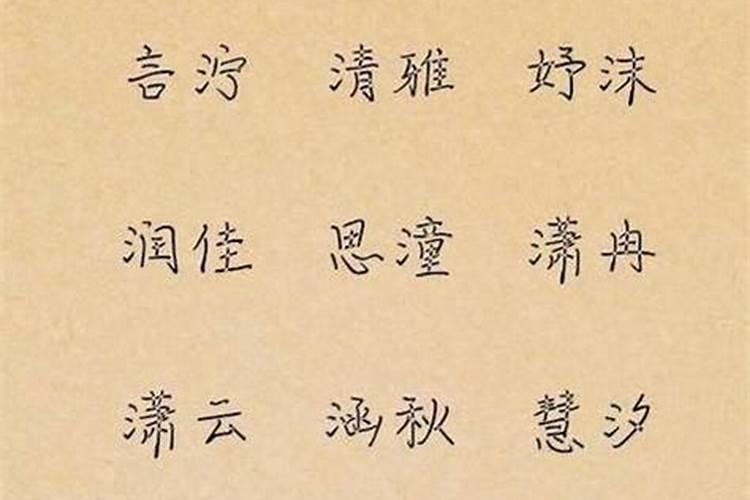 言泞 清雅 妤沫
润佳 思潼 潇冉
潇云 涵秋 慧汐